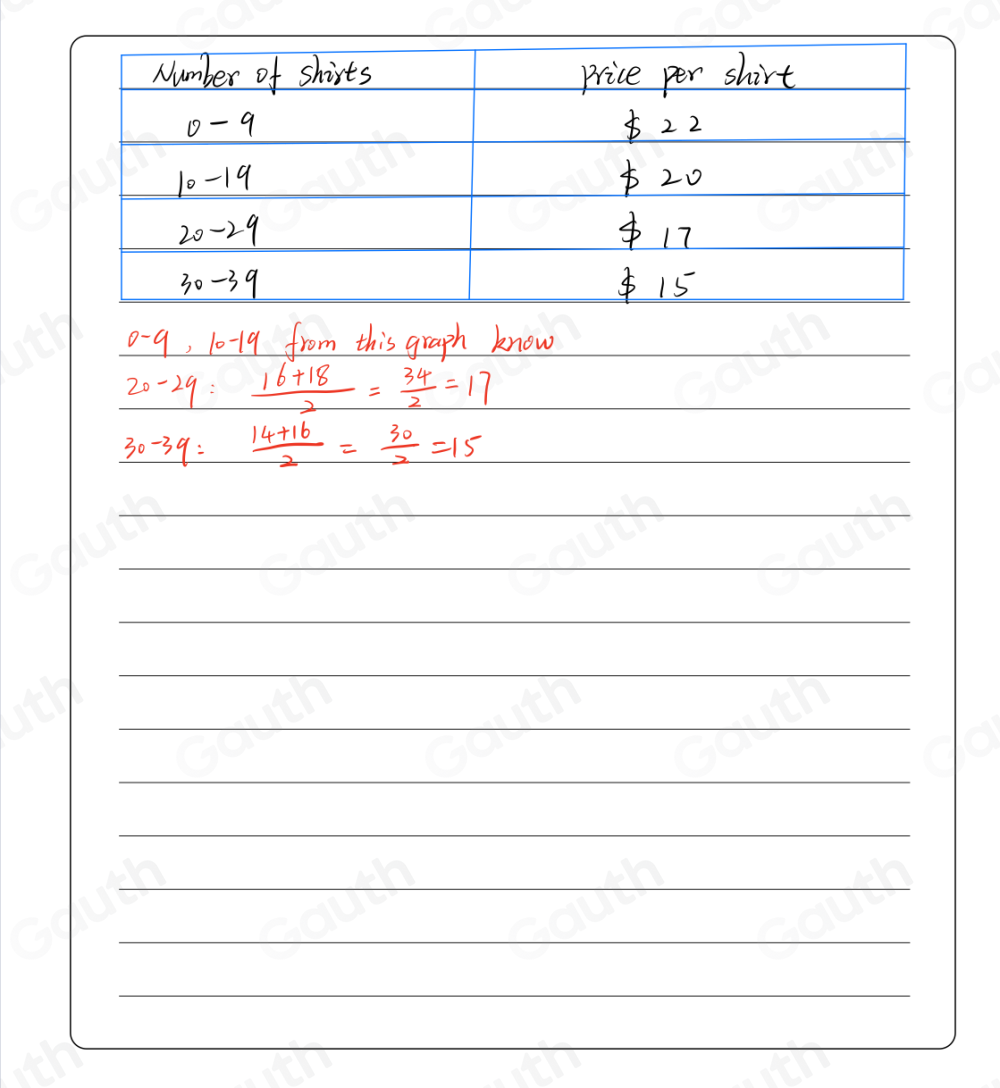 Number of shirts price per shirt
0-9 $22
10-19 $20
20-29 $17
30-39 $15
0-9, 10-19 from this graph know
20-29: (16+18)/2 = 34/2 = 17
30-39: (14+16)/2 = 30/2 = 15
Gauth